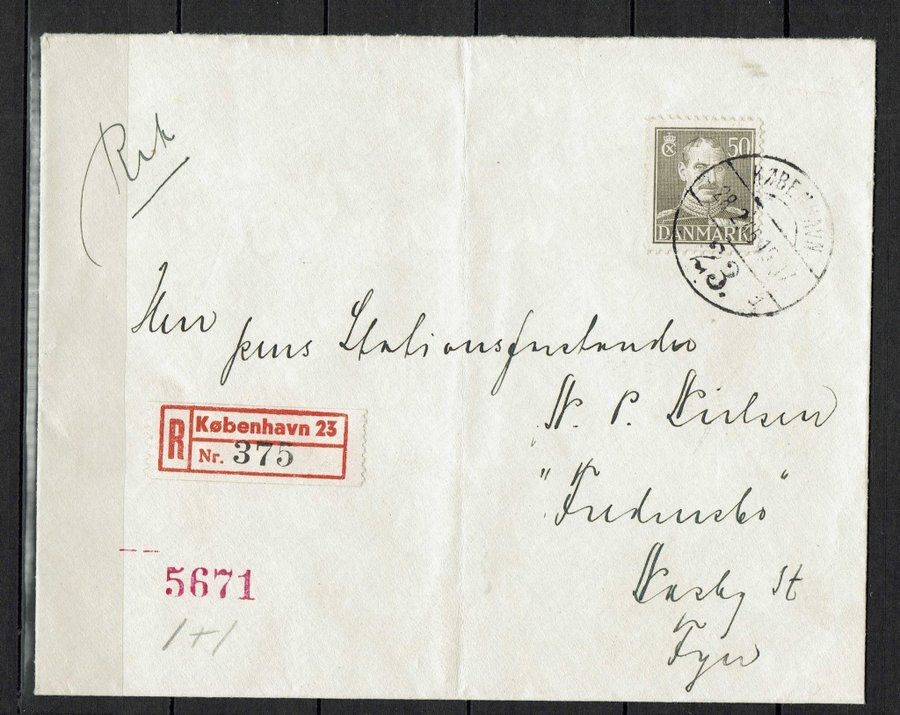 Rek
50
DANMARK
KØBENHAVN
23.
Herr
pens Stationsforstander
N. P. Nielsen
"Fredensbo"
Næsby St
Fyn
R København 23
Nr. 375
5671
1+1